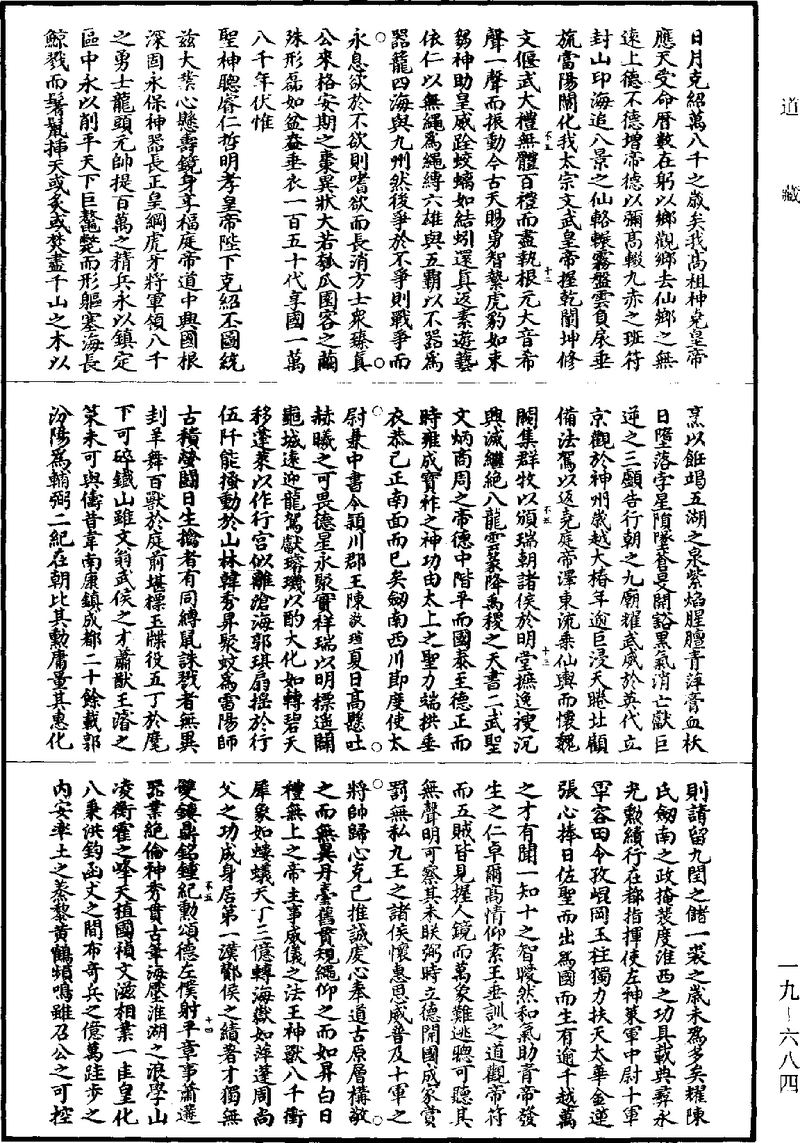 道藏
日月克紹萬八千之歲矣我髙祖神堯皇帝
應天受命曆數在躬以鄉觀鄉去仙鄉之無
遠上德不德增帝德以彌髙輟九赤之班符
封山印海追八景之仙輅轘霧盤雲負扆垂
旒當陽闡化我太宗文武皇帝握乾闡坤修
不五 十二
文偃武大禮無體百禮而盡執根元大音希
聲一聲而振動今古天賜勇智縶虎豹如束
芻神助皇威跧蛟螭如結蚓還真返素遊藝
依仁以無繩爲繩縛六雄與五霸以不器爲
器籠四海與九州然後爭於不爭則戰爭而
永息欲於不欲則嗜欲而長消方士衆臻真
公來格安期之棗異狀大若瓠瓜園客之繭
殊形磊如盆盎垂衣一百五十代享國一萬
八千年伏惟
聖神聰睿仁哲明孝皇帝陛下克紹丕圖統
兹大業心懸壽鏡身享福庭帝道中興國根
深固永保神器長正皇綱虎牙將軍領八千
之勇士龍頭元帥提百萬之精兵永以鎮定
區中永以削平天下巨鼇斃而形軀塞海長
鯨戮而鬐鬣揷天或炙或焚盡千山之木以
烹以飪竭五湖之泉紫焰腥膻青萍膏血妖
日墮落孛星隕墜蒼旻開豁黑氣消亡獻巨
逆之三顱告行朝之九廟耀武威於英代立
京觀於神州歲越大椿年逾巨浸天睠北顧
備法駕以返堯庭帝澤東流乗仙輿而懷魏
不五 十三
闕集群牧以頒瑞朝諸侯於明堂摭逸搜沉
興滅繼絶八龍雲篆降禹稷之天書二武聖
文炳商周之帝德中階平而國泰王德正而
時雍成寶祚之神功由太上之聖力端拱垂
衣恭己正南面而已矣劒南西川節度使太
尉兼中書令潁川郡王陳敬瑄夏日高懸吐
赫曦之可畏德星永聚賁祥瑞以明標遥闢
龜城速迎龍駕獻璿璣以酌大化如轉碧天
移蓬萊以作行宫似離滄海郭琪扇摇於行
伍阡能搔動於山林韓秀昇聚蚊爲雷陽師
古積螢鬭日生擒者有同縛鼠誅戮者無異
刲羊舞百獸於庭前堪標玉牒役五丁於麾
下可碎鐵山雖文翁武侯之才蕭猷王濬之
策未可與儔昔韋南康鎮成都二十餘載郭
汾陽爲輔弼二紀在朝比其勲庸量其惠化
則請留九閏之儲一裘之歲未爲多矣耀陳
氏劒南之政掩裴度淮西之功具載典彝永
光勲績行在都指揮使左神策軍中尉十軍
軍容田令孜崐岡玉柱獨力扶天太華金蓮
張心捧日佐聖而出爲國而生有逾千越萬
之才有聞一知十之智暖然和氣助青帝發
生之仁卓爾高情仰素王垂訓之道觀帝符
而五賊皆見握人鏡而萬象難逃聽可聽其
無聲明可察其未眹弼時立德開國成家賞
罰無私九王之諸侯懷惠恩威普及十軍之
將帥歸心克己推誠虔心奉道古原層構敬
之而無異丹臺舊貫規繩仰之而如昇白日
禮無上之帝主事威儀之法王神獸八千衝
犀象如螻蟻天丁三億轉海嶽如萍蓬周尚
父之功成身居第一漢酇侯之績著才獨無
不五 十四
雙鏤鼎銘鐘紀勲頌德左僕射平章事蕭遘
器業絶倫神秀貫古筆海壓淮湖之浪學山
凌衡霍之峰天植國禎文滋相業一匡皇化
八秉洪鈞函丈之間布奇兵之億萬跬步之
内安率土之蒸黎黃鶴頻鳴雖召公之可控
一九-六八四